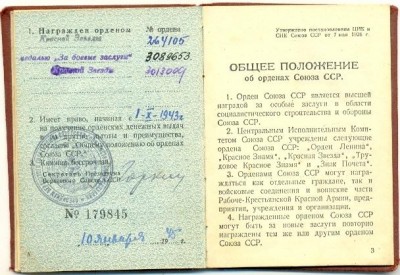 1. Награжден орденом
Красная Звезда
№ ордена
264105
медалью „За боевые заслуги"
3089653
Красной Звезды
2. Имеет право, начиная с 1-X-1943 г.
на получение орденских денежных выдач
и на другие льготы и преимущества,
согласно „Общему положению об орденах
Союза ССР".
3. Книжка бессрочная.
Секретарь Президиума
Верховного Совета
Горкин
№ 179845
10 января 45
2
Утверждено постановлением ЦИК и
СНК Союза ССР от 7 мая 1936 г.
ОБЩЕЕ ПОЛОЖЕНИЕ
об орденах Союза ССР.
1. Орден Союза ССР является высшей
наградой за особые заслуги в области
социалистического строительства и обороны
Союза ССР.
2. Центральным Исполнительным Коми-
тетом Союза ССР учреждены следующие
ордена Союза ССР: „Орден Ленина",
„Красное Знамя", „Красная Звезда", „Тру-
довое Красное Знамя" и „Знак Почета".
3. Орденами Союза ССР могут награ-
ждаться как отдельные граждане, так и
войсковые соединения и воинские части
Рабоче-Крестьянской Красной Армии, пред-
приятия, учреждения и организации.
4. Награжденные орденом Союза ССР
могут быть за новые заслуги повторно
награждены тем же или другим орденом
Союза ССР.
3